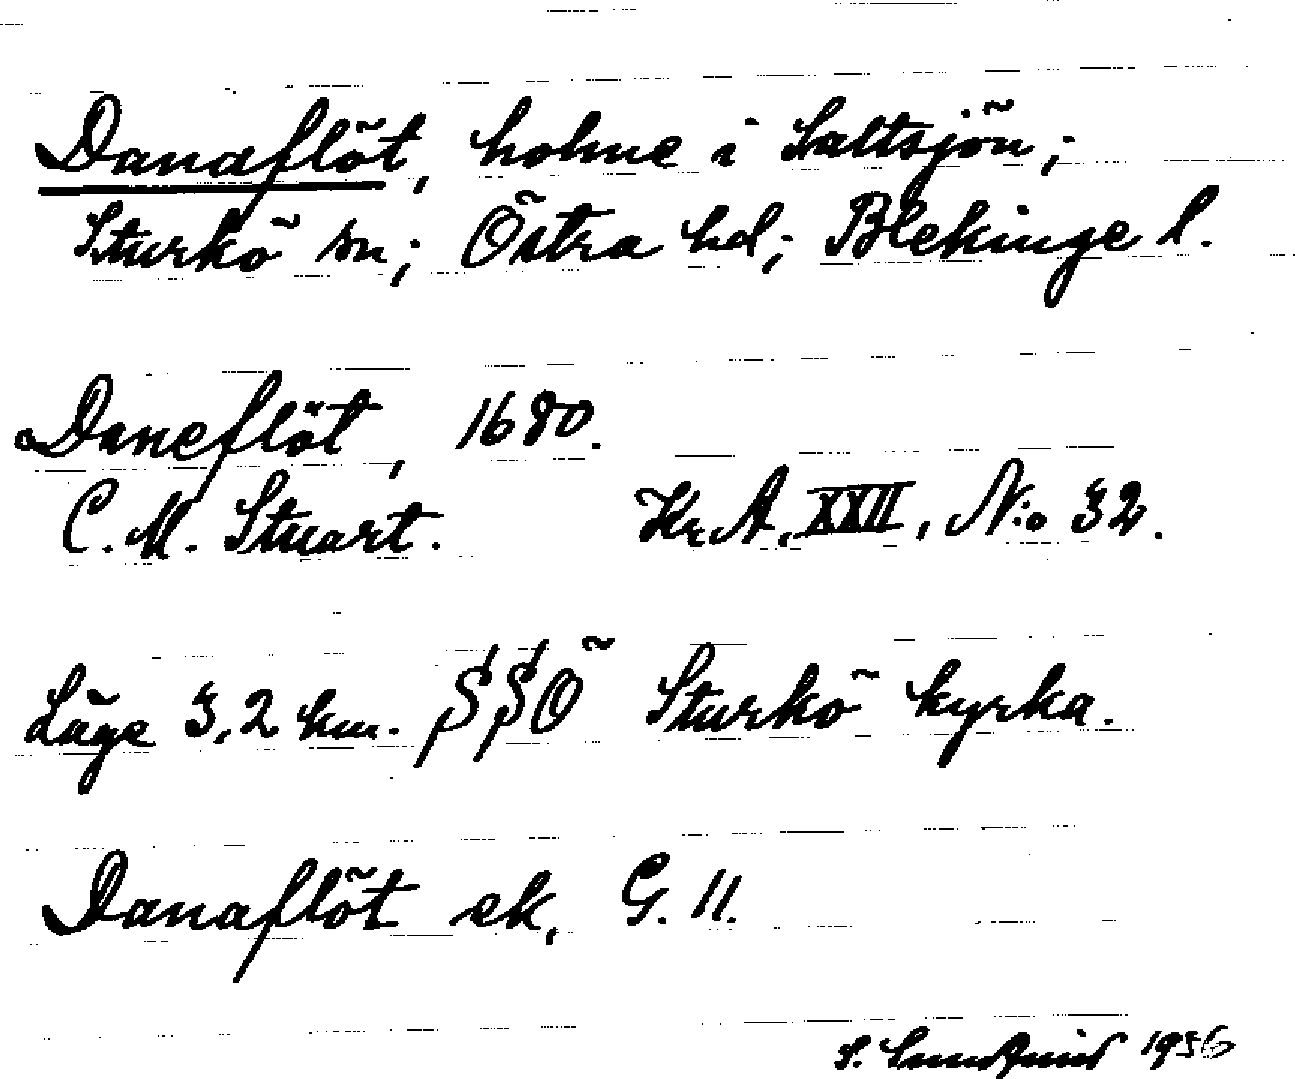 Danaflöt, holme i Saltsjön;
Sturkö sn; Östra hd; Blekinge l.
Daneflöt, 1680.
C. M. Stuart. Kr.A. XXII, N:o 32.
Läge 3,2 km. SSÖ Sturkö kyrka.
Danaflöt ek. G. 11.
S. 1956